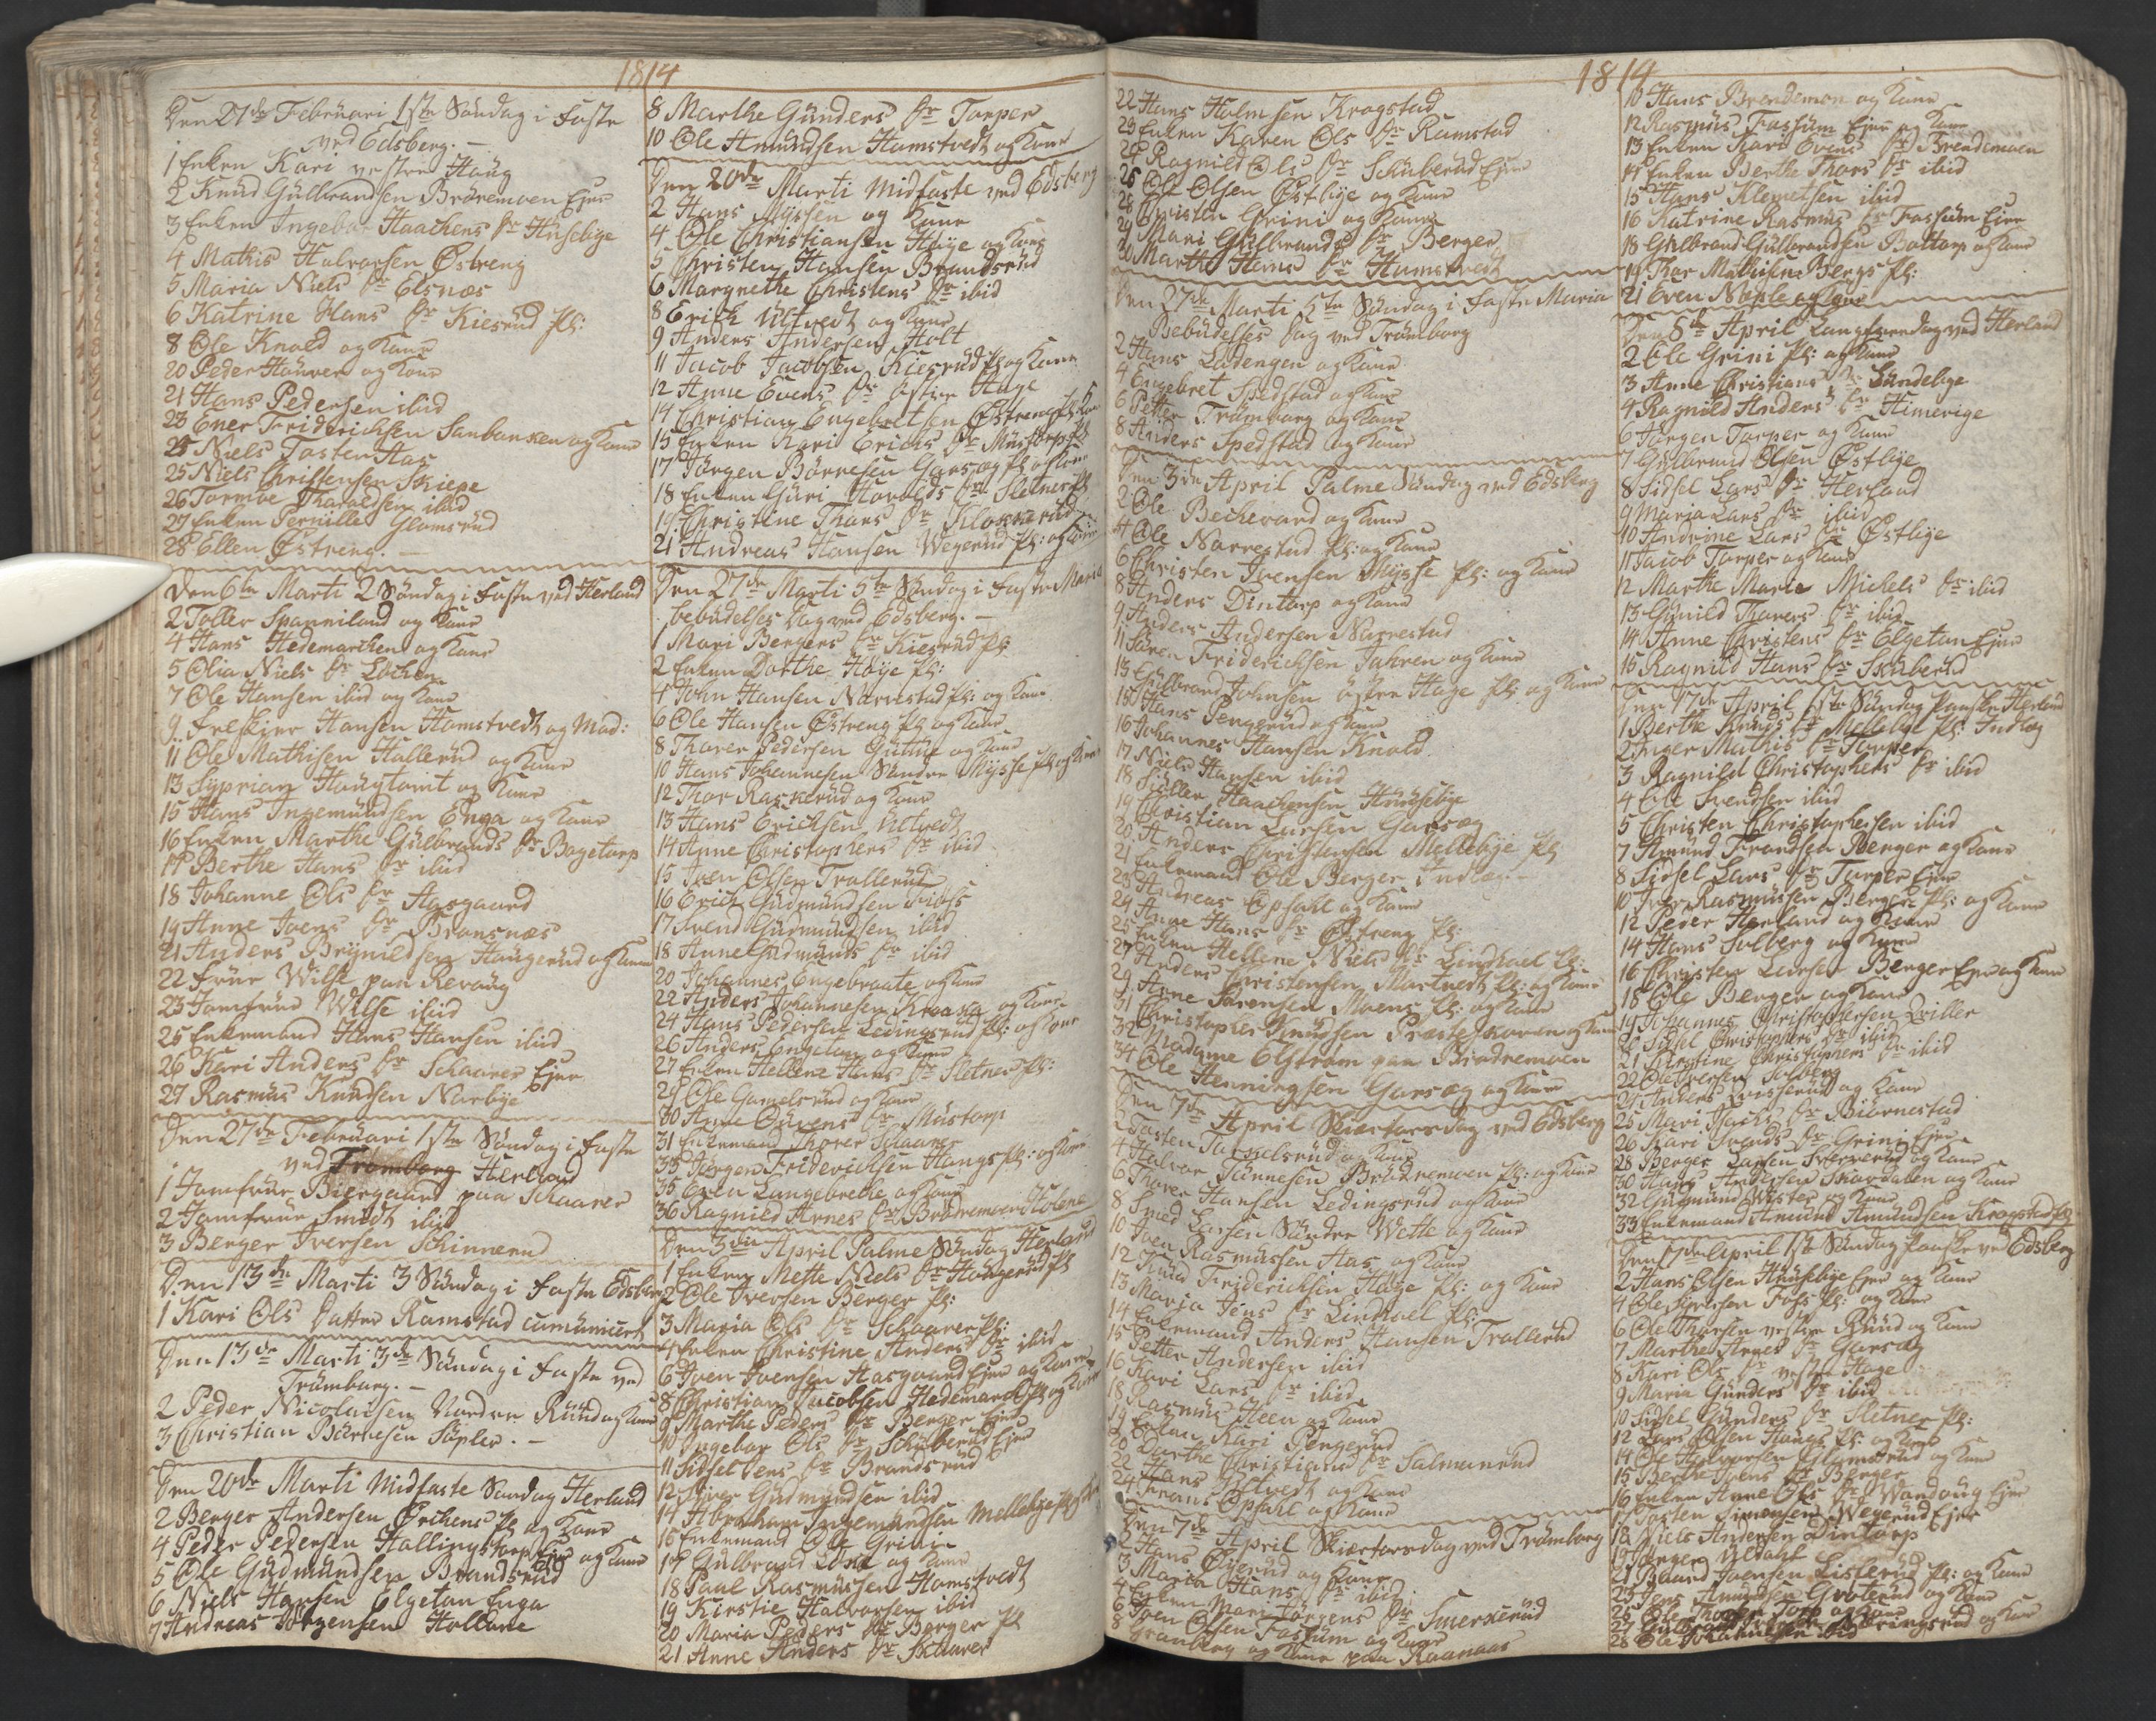 1814
Den 27de Februari 1ste Söndag i Faste
ved Edsberg. —
1 Enken Kari vestre Haug
2 Knud Gulbrandsen Bröremoen Ejer
3 Enken Ingebor Haachens Dr Huselige
4 Mathis Halvorsen Östreng
5 Maria Niels Dr Elsnæs
6 Katrine Hans Dr Kiesrud Pl:
8 Ole Knold og Kone
20 Peder Haaven og Kone
21 Hans Pedersen ibid
23 Ener Friderichsen Sanbancken og Kone
24 Niels Fosten Aas
25 Niels Christensen Skiepe
26 Tormoe Tharaldsen ibid
27 Enken Pernille Glomsrud
28 Ellen Östreng. —
Den 6te Marti 2 Söndag i Faste ved Herland
2 Toller Spanniland og Kone
4 Hans Hedemarchen og Kone
5 Olia Niels Dr Lochen
7 Ole Hansen ibid og Kone
9 Hansen Hamstvedt og Mad:
11 Ole Mathisen Hallerud og Kone
13 Syprian Haugtomt og Kone
15 Hans Ingemundsen Enga og Kone
16 Enken Marthe Gulbrands Dr Bogetorp
17 Berthe Hans Dr ibid
18 Johanne Ols Dr Aasgaard
19 Anne Joens Dr Bransnæs
21 Anders Brynildsen Haugerud og Kone
22 Frue Wilse paa Revaug
23 Jomfrue Wilse ibid
25 Enkemand Hans Hansen ibid
26 Kari Anders Dr Schaarer Ejer
27 Rasmus Knudsen Narbye
Den 27de Februari 1ste Söndag i Faste
ved Tromborg Herland
1 Jomfrue Biergaard paa Schaarer
2 Jomfrue Smidt ibid
3 Berger Iversen Schinnerud
Den 13de Marti 3 Söndag i Faste Edsberg
1 Kari Ols Datter Ramstad cumunicert
Den 13de Marti 3de Söndag i Faste ved
Trömborg. —
2 Peder Nicolaisen Nordre Rund og Kone
3 Christian Börresen Süpler. —
Den 20de Marti Midfaste Sondag Herland
2 Berger Andersen Örchens Pl og Kone
4 Peder Pedersen Hallingstorp Ejer og Kone
5 Ole Gudmundsen Brandsrud
6 Niels Hansen Elgetun Enga
7 Andreas Jörgensen Hollane
8 Marthe Gunders Dr Torper
10 Ole Amundsen Hamstvedt og Kone
Den 20de Marti Midfaste ved Edsberg
2 Hans Myssen og Kone
4 Ole Christiansen Hage og Kone
5 Christen Hansen Brandsrud
6 Margrethe Christens Dr ibid
8 Erich Ultvedt og Kone
9 Anders Andersen Holt
11 Jacob Jacobsen Kiesrud Pl og Kone
12 Anne Evens Dr Östre Hage
14 Christian Engebretsen Östreng Pl Kone
15 Enken Kari Erichs Dr Mustorp Pl
17 Jörgen Börresen Garseg Pl og Kone
18 Enken Guri Dr Sletner Pl
19 Christine Thors Dr Klocherud
21 Andreas Hansen Wegerud Pl: og Kone
Den 27de Marti 5te Söndag i Faste Maria
bebudelses Dag ved Edsberg. —
1 Mari Bergers Dr Kiesrud Pl
2 Enken Dorthe Höije Pl:
4 John Hansen Narrestad Pl: og Kone
6 Ole Hansen Östreng Pl og Kone
8 Thorer Pedersen Gutue og Kone
10 Hans Johannesen Söndre Mysse Pl og Kone
12 Thor Raskerud og Kone
13 Hans Erichsen Ultvedt
14 Anne Christophers Dr ibid
15 Iver Olsen Trollerud
16 Erich Gudmundsen Fos
17 Svend Gudmundsen ibid
18 Anne Gudmunds Dr ibid
20 Johannes Engebraate og Kone
22 Anders Johannesen Kraasa og Kone
24 Hans Pedersen Ledingsrud Pl: og Kone
26 Anders Engetun og Kone
27 Enken Hellene Hans Dr Sletner Pl:
29 Ole Gamelsrud og Kone
30 Anne Dr Mustorp
31 Enkemand Thorer Schaarer
33 Jörgen Friderichsen Haugs Pl: og Kone
35 Even Langebrecke og Kone
36 Ragnild Arnes Dr Brödremoen Holene
Den 3die April Palme Söndag Herland
1 Enken Mette Niels Dr Haugerud Pl
2 Ole Iversen Berger Pl:
3 Maria Ols Dr Schaarer Pl:
4 Enken Christine Anders Dr ibid
6 Joen Joensen Aasgaard Ejer og Kone
8 Christian Jacobsen Hedemarch Pl og Kone
9 Marthe Peders Dr Berger Ejer
10 Ingebor Ols Dr Schuberud Ejer
11 Sidsel Jens Dr Brandsrud
12 Gudmundsen ibid
14 Abraham Ingemundsen Mellebye Pl
15 Enkemand Ole Grini
17 Gulbrand og Kone
18 Paul Rasmussen Hamstvedt
19 Kirstie Halvorsen ibid
20 Maria Peders Dr Berger Pl
21 Anne Anders Dr Skaarer
1814
22 Hans Holmsen Krogstad
23 Enken Karen Ols Dr Ramstad
24 Ragnild Ols Dr Schuberud Ejer
26 Ole Olsen Östbye og Kone
28 Christen Grini og Kone
29 Mari Gulbrands Dr Berger
30 Marthe Hans Dr Hamstvedt
Den 27de Marti 5te Söndag i Faste Maria
Bebudelses Dag ved Trömborg
2 Hans Ladengen og Kone
4 Engebret Spedstad og Kone
6 Petter Trömborg og Kone
8 Anders Spedstad og Kone
Den 3die April Palme Söndag ved Edsberg
2 Ole Bechevard og Kone
4 Ole Narrestad Pl: og Kone
6 Christen Ivensen Mysse Pl: og Kone
8 Anders Dintorp og Kone
9 Anders Andersen Narrestad
11 Sören Friderichsen Jahren og Kone
13 Gulbrand Johnsen östre Hage Pl: og Kone
15 Hans Pengerud og Kone
16 Johannes Hansen Knold
17 Niels Hansen ibid
18 Haachensen Huuselige
19 Christian Larsen Garseg
20 Anders Christensen Mellebye Pl
21 Enkemand Ole Berger Indleg. —
23 Andreas Opsahl og Kone
24 Anne Hans Dr Östreng Pl:
25 Enken Hellene Niels Dr Lindhael Pl:
27 Anders Christensen Martvedt Pl: og Kone
29 Arne Sörensen Moens Pl: og Kone
31 Christopher Knudsen Præsteskoven og Kone
32 Madame Elström paa Brödremoen
34 Ole Henningsen Garseg og Kone
Den 7de April Skiertorsdag ved Edsberg
2 Tosten og Kone
4 Halvor Tönnesen Brödremoen Pl: og Kone
6 Thorer Hansen Ledingsrud og Kone
8 Larsen Söndre Wette og Kone
10 Iven Rasmussen Aas og Kone
12 Knud Friderichsen Hage Pl: og Kone
13 Maria Jens Dr Lindhael Pl:
14 Enkemand Anders Hansen Trollerud
15 Petter Andersen ibid
16 Kari Lars Dr ibid
18 Rasmus Heen og Kone
19 Enken Kari Pengerud
20 Dorthe Christians Dr Salmunrud
22 Hans Ultvedt og Kone
24 Frans Opsahl og Kone
Den 7de April Skiertorsdag ved Trömborg
2 Hans Öyerud og Kone
3 Maria Hans Dr ibid
4 Enken Mari Jörgens Dr Smerkerud
6 Joen Olsen Fossum og Kone
8 Granberg og Kone paa Raanaas
10 Hans Brendemoen og Kone
12 Rasmus Fossum Ejer og Kone
13 Enken Kari Evens Dr Brendemoen
14 Enken Berthe Thors Dr ibid
15 Hans Klemetsen ibid
16 Katrine Rasmus Dr Fossum Ejer
18 Gulbrand Gulbrandsen Bottorp og Kone
19 Thor Mathisen Bergs Pl:
21 Even Næple og Kone
Den 8de April Langfredag ved Herland
2 Ole Grini Pl: og Kone
3 Anne Christians Dr Sundebye
4 Ragnild Anders Dr Himerige
6 Jörgen Torper og Kone
7 Gulbrand Olsen Östbye
8 Sidsel Lars Dr Herland
9 Maria Lars Dr ibid
10 Andrine Lars Dr Östbye
11 Jacob Torper og Kone
12 Marthe Marie Michels Dr ibid
13 Gunild Thorers Dr ibid
14 Anne Christens Dr Elgetun Ejer
15 Ragnild Hans Dr Skuberud
Den 17de April 1ste Söndag Paaske Herland
1 Berthe Knuds Dr Mellebye Pl: Indleg
2 Inger Mathis Dr Torper
3 Ragnild Christophers Dr ibid
4 Ole Svendsen ibid
5 Christen Christophersen ibid
7 Amund Frandsen Berger og Kone
8 Sidsel Lars Dr Torper Ejer
10 Iver Rasmussen Berger Pl: og Kone
12 Peder Herland og Kone
14 Hans Solberg og Kone
16 Christen Larsen Berger Ejer og Kone
18 Ole Berger og Kone
19 Johannes Christophersen Qviller
20 Sidsel Christophers Dr ibid
21 Kirstine Christophers Dr ibid
22 Ole Iversen Solberg
24 Anders og Kone
25 Mari Isachs Dr Biörnestad
26 Kari Svends Dr Grini Ejer
28 Berger Larsen og Kone
30 Hans Andersen Skovdalen og Kone
32 Gudmund Wister og Kone
33 Enkemand Amund Amundsen Krogstad Pl
Den 17de April 1ste Söndag Paaske ved Edsberg
2 Hans Olsen Huuselige Ejer og Kone
4 Ole Fos Pl: og Kone
6 Ole Thorsen vestre Rund og Kone
7 Marthe Arnes Dr Garseg
8 Kari Ols Dr vestre Hage
9 Maria Gunders Dr ibid
10 Sidsel Gunders Dr Sletner Pl:
12 Lars Olsen Haugs Pl: og Kone
14 Ole Halvorsen Glomsrud og Kone
15 Berthe Joens Dr Berger
16 Enken Anne Ols Dr Wandaug Ejer
17 Tosten Simonsen Wegerud Ejer
18 Niels Andersen Dintorp
19 Berger Uldahl
21 Baard Joensen Listerud Pl: og Kone
23 Jens Amundsen Groterud og Kone
25 Ole Thorer Torp og Kone